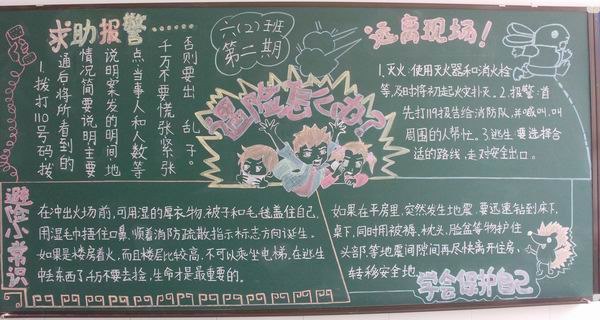 求助报警……
1.拨打110号码拨
通后将所看到的
情况简要说明主要
说明案发的明间地
点当事人和人数等
千万不要慌张紧张
否则要出乱子。
六(2)班
第二期
遇险怎么办?
远离现场!
1.灭火:使用灭火器和消火栓
等,及时将初起火灾扑灭。2.报警:首
先打119报告给消防队,并喊叫,叫
周围的人帮忙。3.逃生:要选择合
适的路线,走对安全出口。
避险小常识
在冲出火场前,可用湿的厚衣物,被子和毛毯盖住自己,
用湿毛巾捂住口鼻,顺着消防疏散指示标志方向逃生。
如果是楼房着火,而且楼层比较高,不可以乘坐电梯,在逃生
中丢东西了千万不要去捡,生命才是最重要的。
如果在平房里,突然发生地震,要迅速钻到床下,
桌下,同时用被褥,枕头,脸盆等物护住
头部,等地震间隙间再尽快离开住房,
转移安全地
学会保护自己